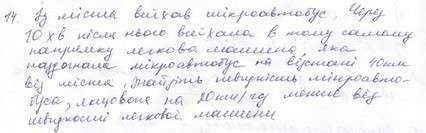 14. Із міста виїхав мікроавтобус. Через
10 хв після нього виїхала в тому самому
напрямку легкова машина, яка
наздогнала мікроавтобус на відстані 40км
від міста. Знайдіть швидкість мікроавто-
буса, якщо вона на 20км/год менше від
швидкості легкової машини